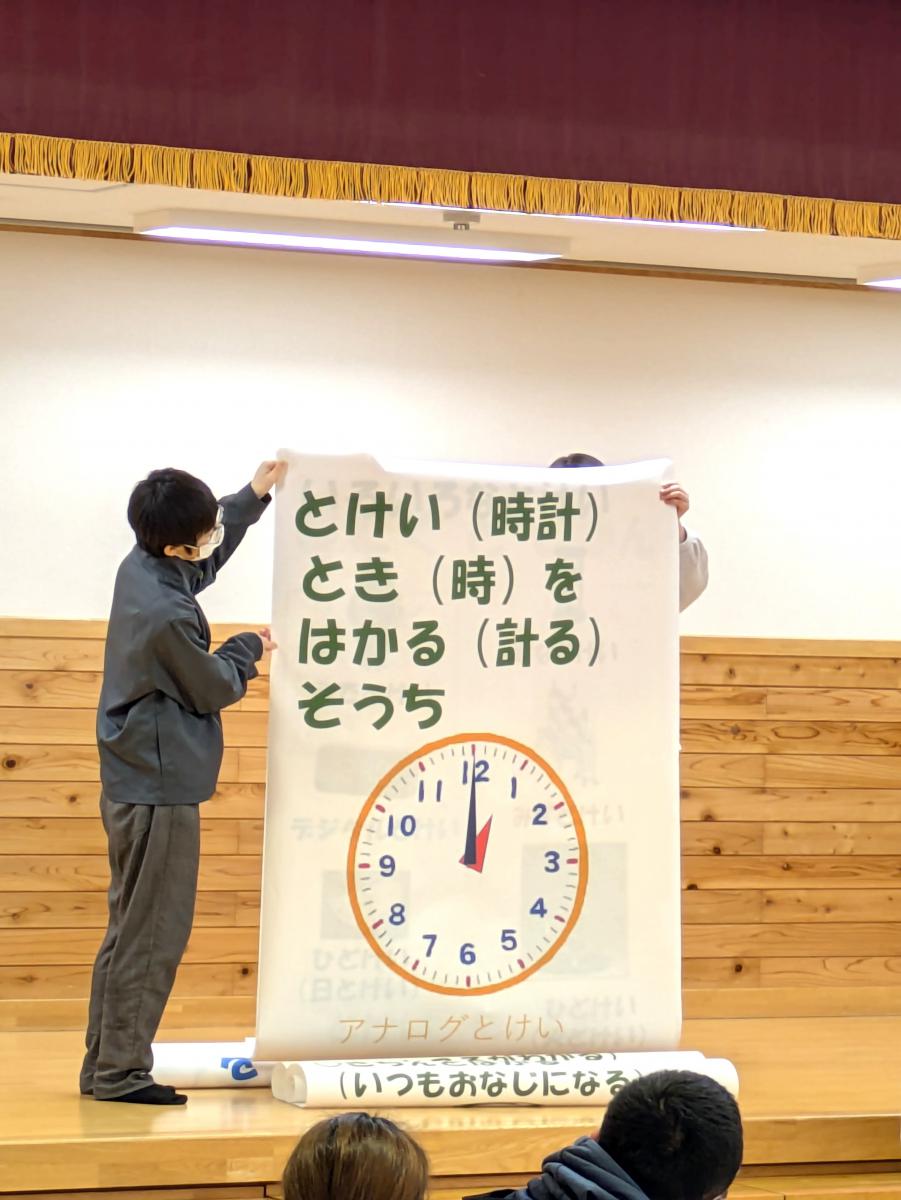 とけい（時計）
とき（時）を
はかる（計る）
そうち
12
1
2
3
4
5
6
7
8
9
10
11
アナログとけい
（いつもおなじになる）